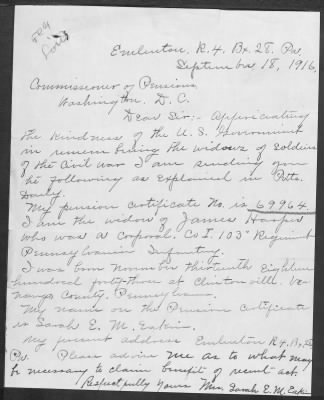 Emlenton, R. 4, Bx. 28. Pa.
September 18, 1916,
Commissioner of Pensions
Washington, D. C.
Dear Sir:- Appreciating
the kindness of the U. S. Government
in remembering the widows of soldiers
of the Civil War I am sending you
the following as explained in Pitts.
Daily.
My pension certificate No. is 69964
I am the widow of James Harper
who was a corporal, Co I. 103" Regiment
Pennsylvania Infantry.
I was born November thirteenth Eighteen
hundred forty-three at Clintonville. Ve-
nango County, Pennsylvania.
My name on the Pension Certificate
is Sarah E. M. Eakin.
My present address Emlenton R. 4, Bx. 28
Pa. Please advise me as to what may
be necessary to claim benefit of recent act.
Respectfully yours Mrs. Sarah E. M. Eakin